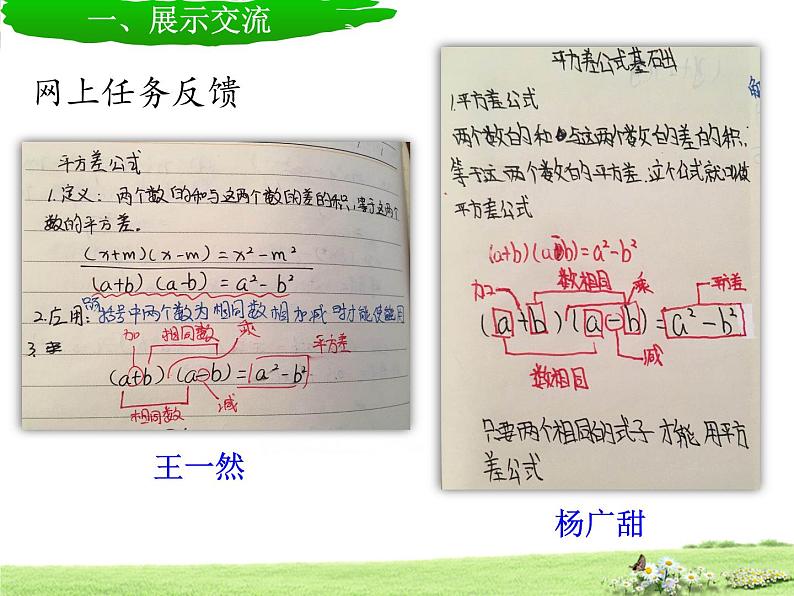 一、展示交流
网上任务反馈
平方差公式
1.定义：两个数的和与这两个数的差的积，等于这两个
数的平方差。
(x+m)(x-m)=x²-m²
(a+b)(a-b)=a²-b²
2.应用：括号中两个数为相同数相加减时才能使能用
3.
加 相同数 乘 平方差
(a+b)(a-b)=a²-b²
相同数 减
王一然
平方差公式基础
1.平方差公式
两个数的和与这两个数的差的积，
等于这两个数的平方差.这个公式就叫做
平方差公式
(a+b)(a-b)=a²-b²
加 数相同 乘 平方差
(a+b)(a-b)=a²-b²
数相同 减
只要两个相同的式子才能用平方
差公式
杨广甜